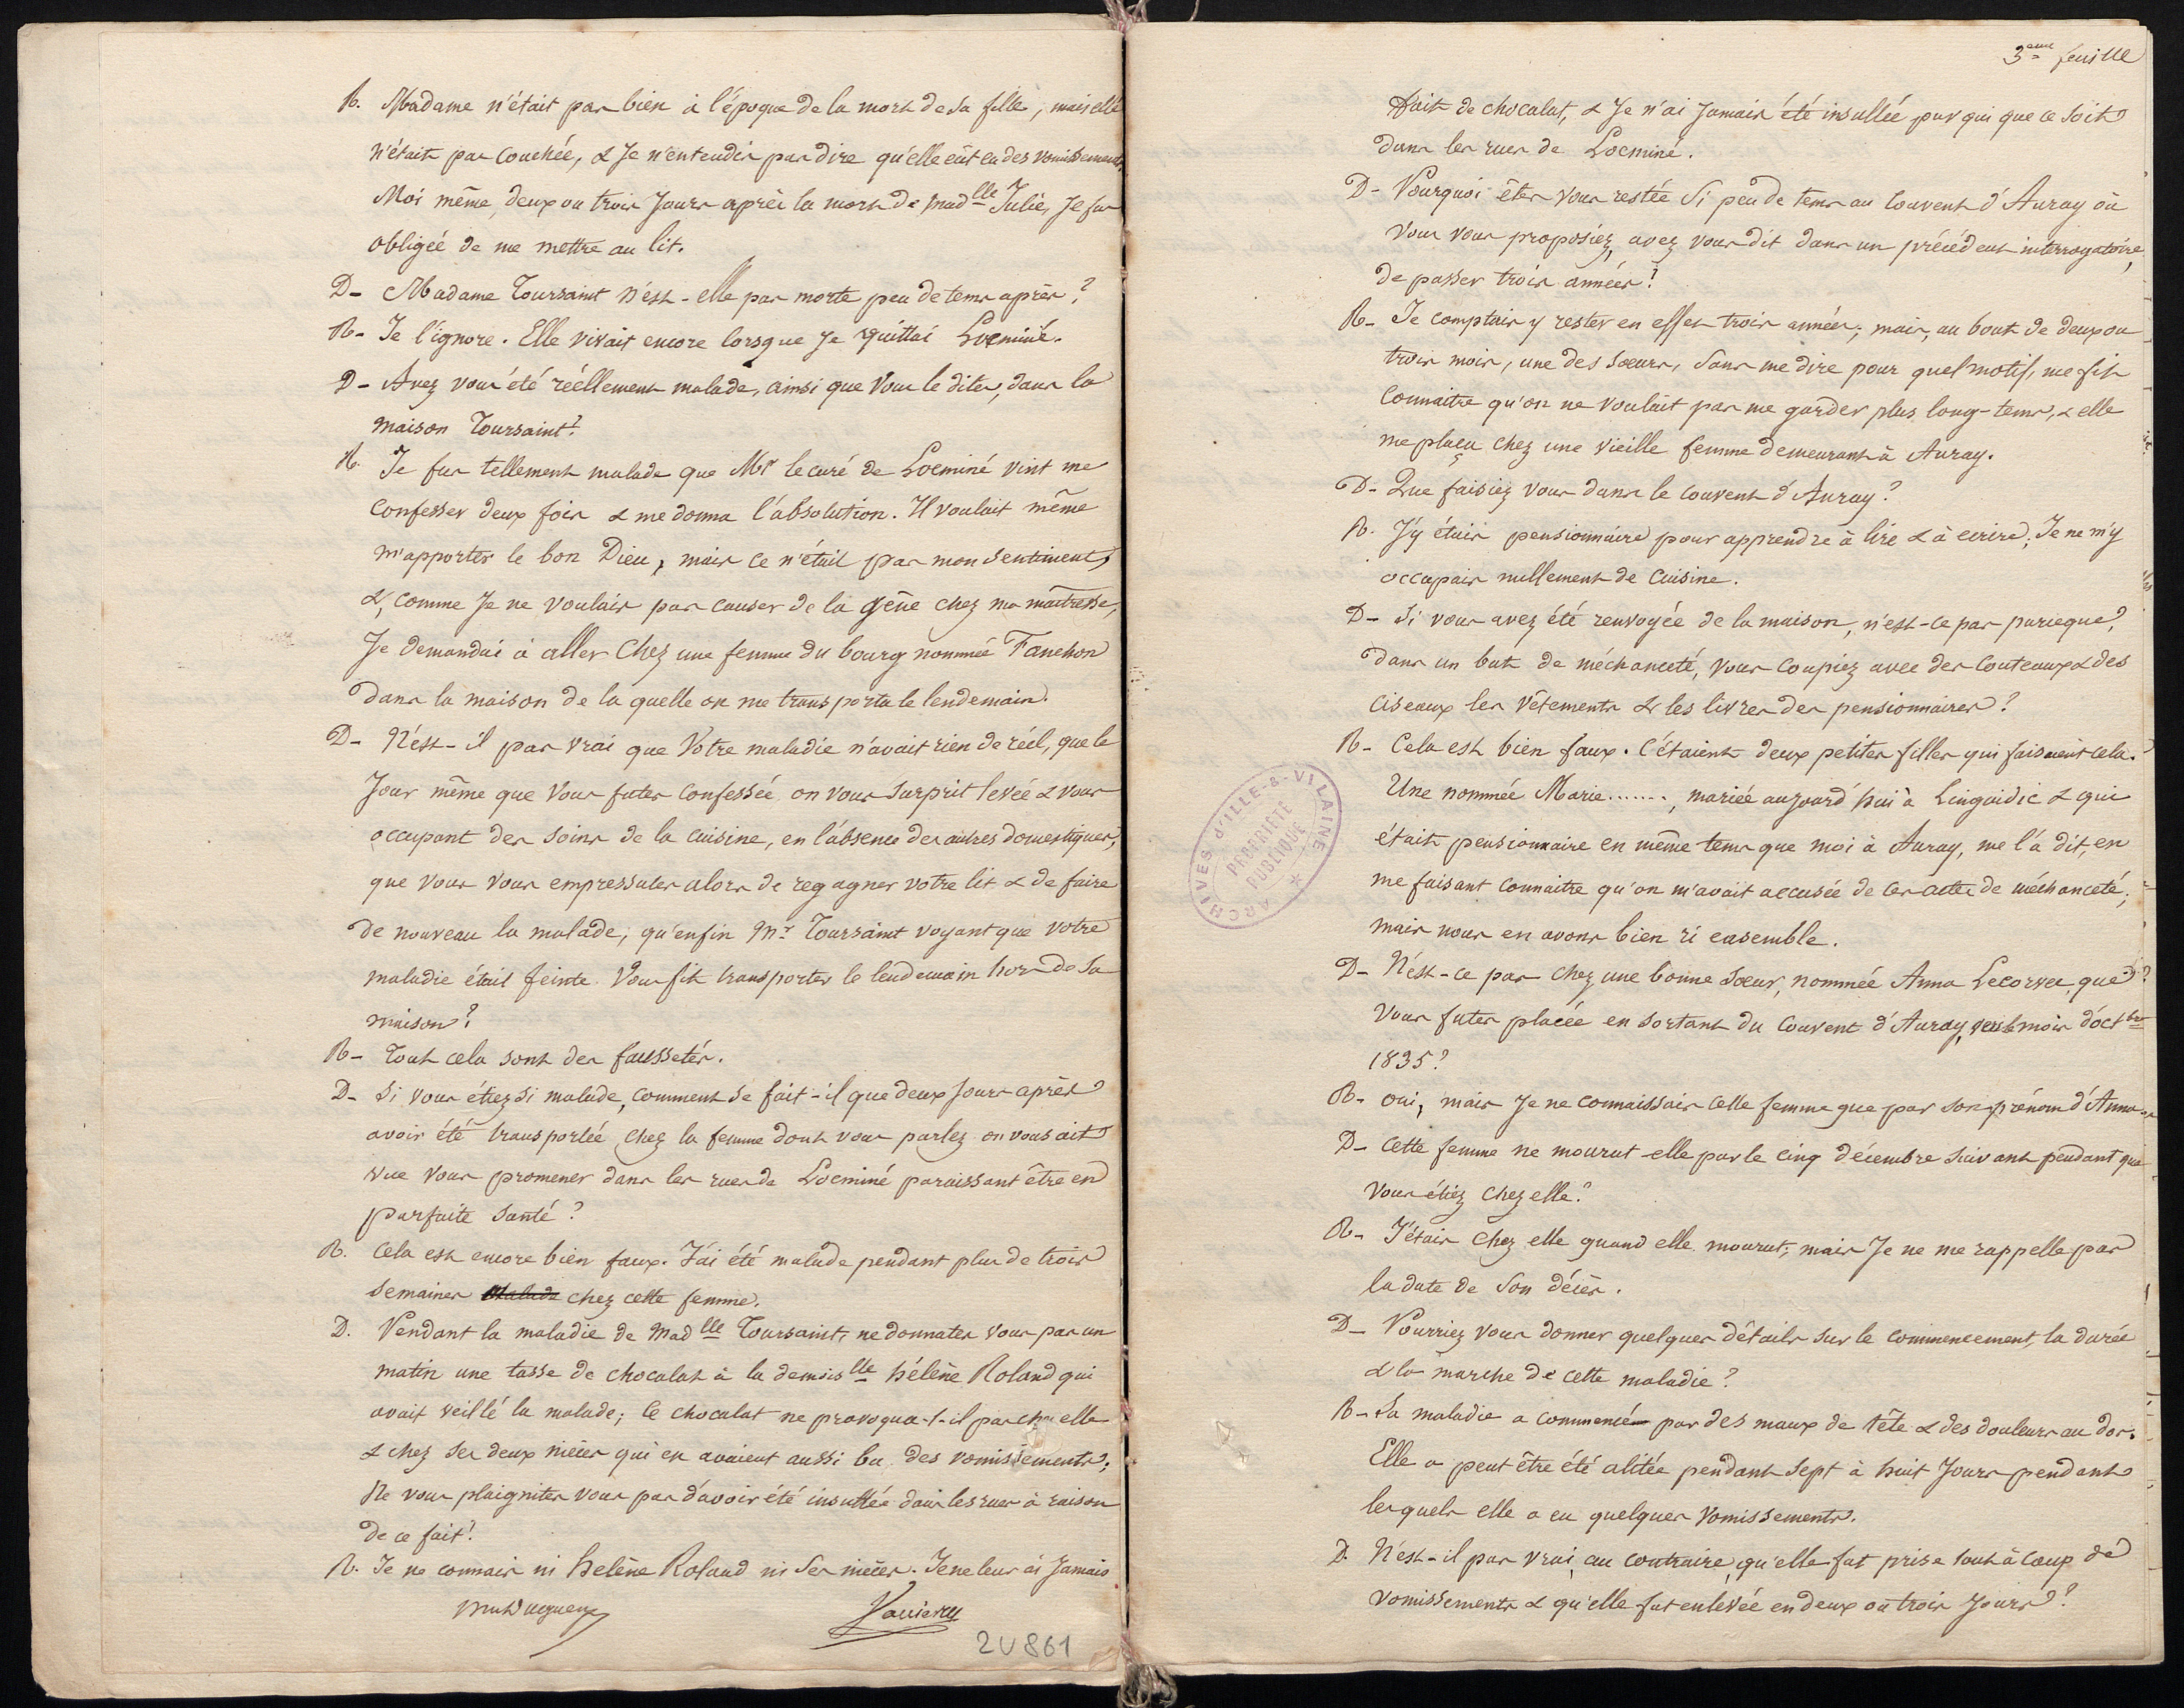 R. Madame n'était pas bien à l'époque de la mort de sa fille, mais elle
n'était pas couchée, & Je n'entendis pas dire qu'elle eût eu des vomissements.
Moi même, deux ou trois Jours après la mort de Mad.lle Julie, Je fus
obligée de me mettre au lit.
D- Madame Toursaint n'est-elle pas morte peu de tems après?
R- Je l'ignore. Elle vivait encore lorsque Je quittai Locminé.
D- Avez vous été réellement malade, ainsi que vous le dites, dans la
maison Toursaint?
R. Je fus tellement malade que Mr le curé de Locminé vint me
confesser deux fois & me donna l'absolution. Il voulait même
m'apporter le bon Dieu, mais ce n'était pas mon sentiment,
&, comme Je ne voulais pas causer de la gêne chez ma maîtresse,
Je demandai à aller chez une femme du bourg nommée Fanchon
dans la maison de la quelle on me transporta le lendemain.
D- N'est-il pas vrai que votre maladie n'avait rien de réel, que le
Jour même que vous futes confessée on vous surprit levée & vous
occupant des soins de la cuisine, en l'absence des autres domestiques;
que vous vous empressates alors de regagner votre lit & de faire
de nouveau la malade; qu'enfin Mr Toursaint voyant que votre
maladie était feinte vous fit transporter le lendemain hors de sa
maison?
R- Tout cela sont des faussetés.
D- Si vous étiez si malade, comment se fait-il que deux Jours après
avoir été transportée chez la femme dont vous parlez on vous ait
vue vous promener dans les rues de Locminé paraissant être en
parfaite santé?
R. Cela est encore bien faux. J'ai été malade pendant plus de trois
semaines malade chez cette femme.
D. Pendant la maladie de Mad.lle Toursaint, ne donnates vous pas un
matin une tasse de chocolat à la demois.lle hélène Roland qui
avait veillé la malade; le chocolat ne provoqua-t-il pas chez elle
& chez ses deux nièces qui en avaient aussi bu des vomissements;
Ne vous plaignites vous pas d'avoir été insultée dans les rues à raison
de ce fait?
R. Je ne connais ni helène Roland ni ses nièces. Je ne leur ai Jamais
2U861
3eme feuille
fait de chocolat, & Je n'ai Jamais été insultée par qui que ce soit
dans les rues de Locminé.
D- Pourquoi êtes vous restée si peu de tems au couvent d'Auray où
vous vous proposiez, avez vous dit dans un précédent interrogatoire,
de passer trois années?
R- Je comptais y rester en effet trois années; mais, au bout de deux ou
trois mois, une des sœurs, sans me dire pour quel motif, me fit
connaitre qu'on ne voulait pas me garder plus long-tems, & elle
me plaça chez une vieille femme demeurant à Auray.
D- Que faisiez vous dans le couvent d'Auray?
R. J'y étais pensionnaire pour apprendre à lire & à ecrire; Je ne m'y
occupais nullement de cuisine.
D- Si vous avez été renvoyée de la maison, n'est-ce pas parceque,
dans un but de méchanceté, vous coupiez avec des couteaux & des
ciseaux les vêtements & les livres des pensionnaires?
R- Cela est bien faux. C'étaient deux petites filles qui faisaient cela.
Une nommée Marie......., mariée aujourd'hui à Linguidic & qui
était pensionnaire en même tems que moi à Auray, me l'a dit, en
me faisant connaitre qu'on m'avait accusée de ces actes de méchanceté;
mais nous en avons bien ri ensemble.
D- N'est-ce pas chez une bonne sœur, nommée Anna Lecorvec, que
vous futes placée en sortant du couvent d'Auray, vers le mois d'octbre
1835?
R- oui, mais Je ne connaissais cette femme que par son prénom d'Anna.
D- Cette femme ne mourut-elle pas le cinq décembre suivant pendant que
vous étiez chez elle?
R- J'étais chez elle quand elle mourut; mais Je ne me rappelle pas
la date de son décès.
D- Pourriez vous donner quelques détails sur le commencement, la durée
& la marche de cette maladie?
R- Sa maladie a commencé par des maux de tête & des douleurs au dos.
Elle a peut être été alitée pendant sept à huit Jours pendant
lesquels elle a eu quelques vomissements.
D. N'est-il pas vrai, au contraire, qu'elle fut prise tout à coup de
vomissements & qu'elle fut enlevée en deux ou trois Jours?
ARCHIVES D'ILLE-&-VILAINE
PROPRIÉTÉ
PUBLIQUE